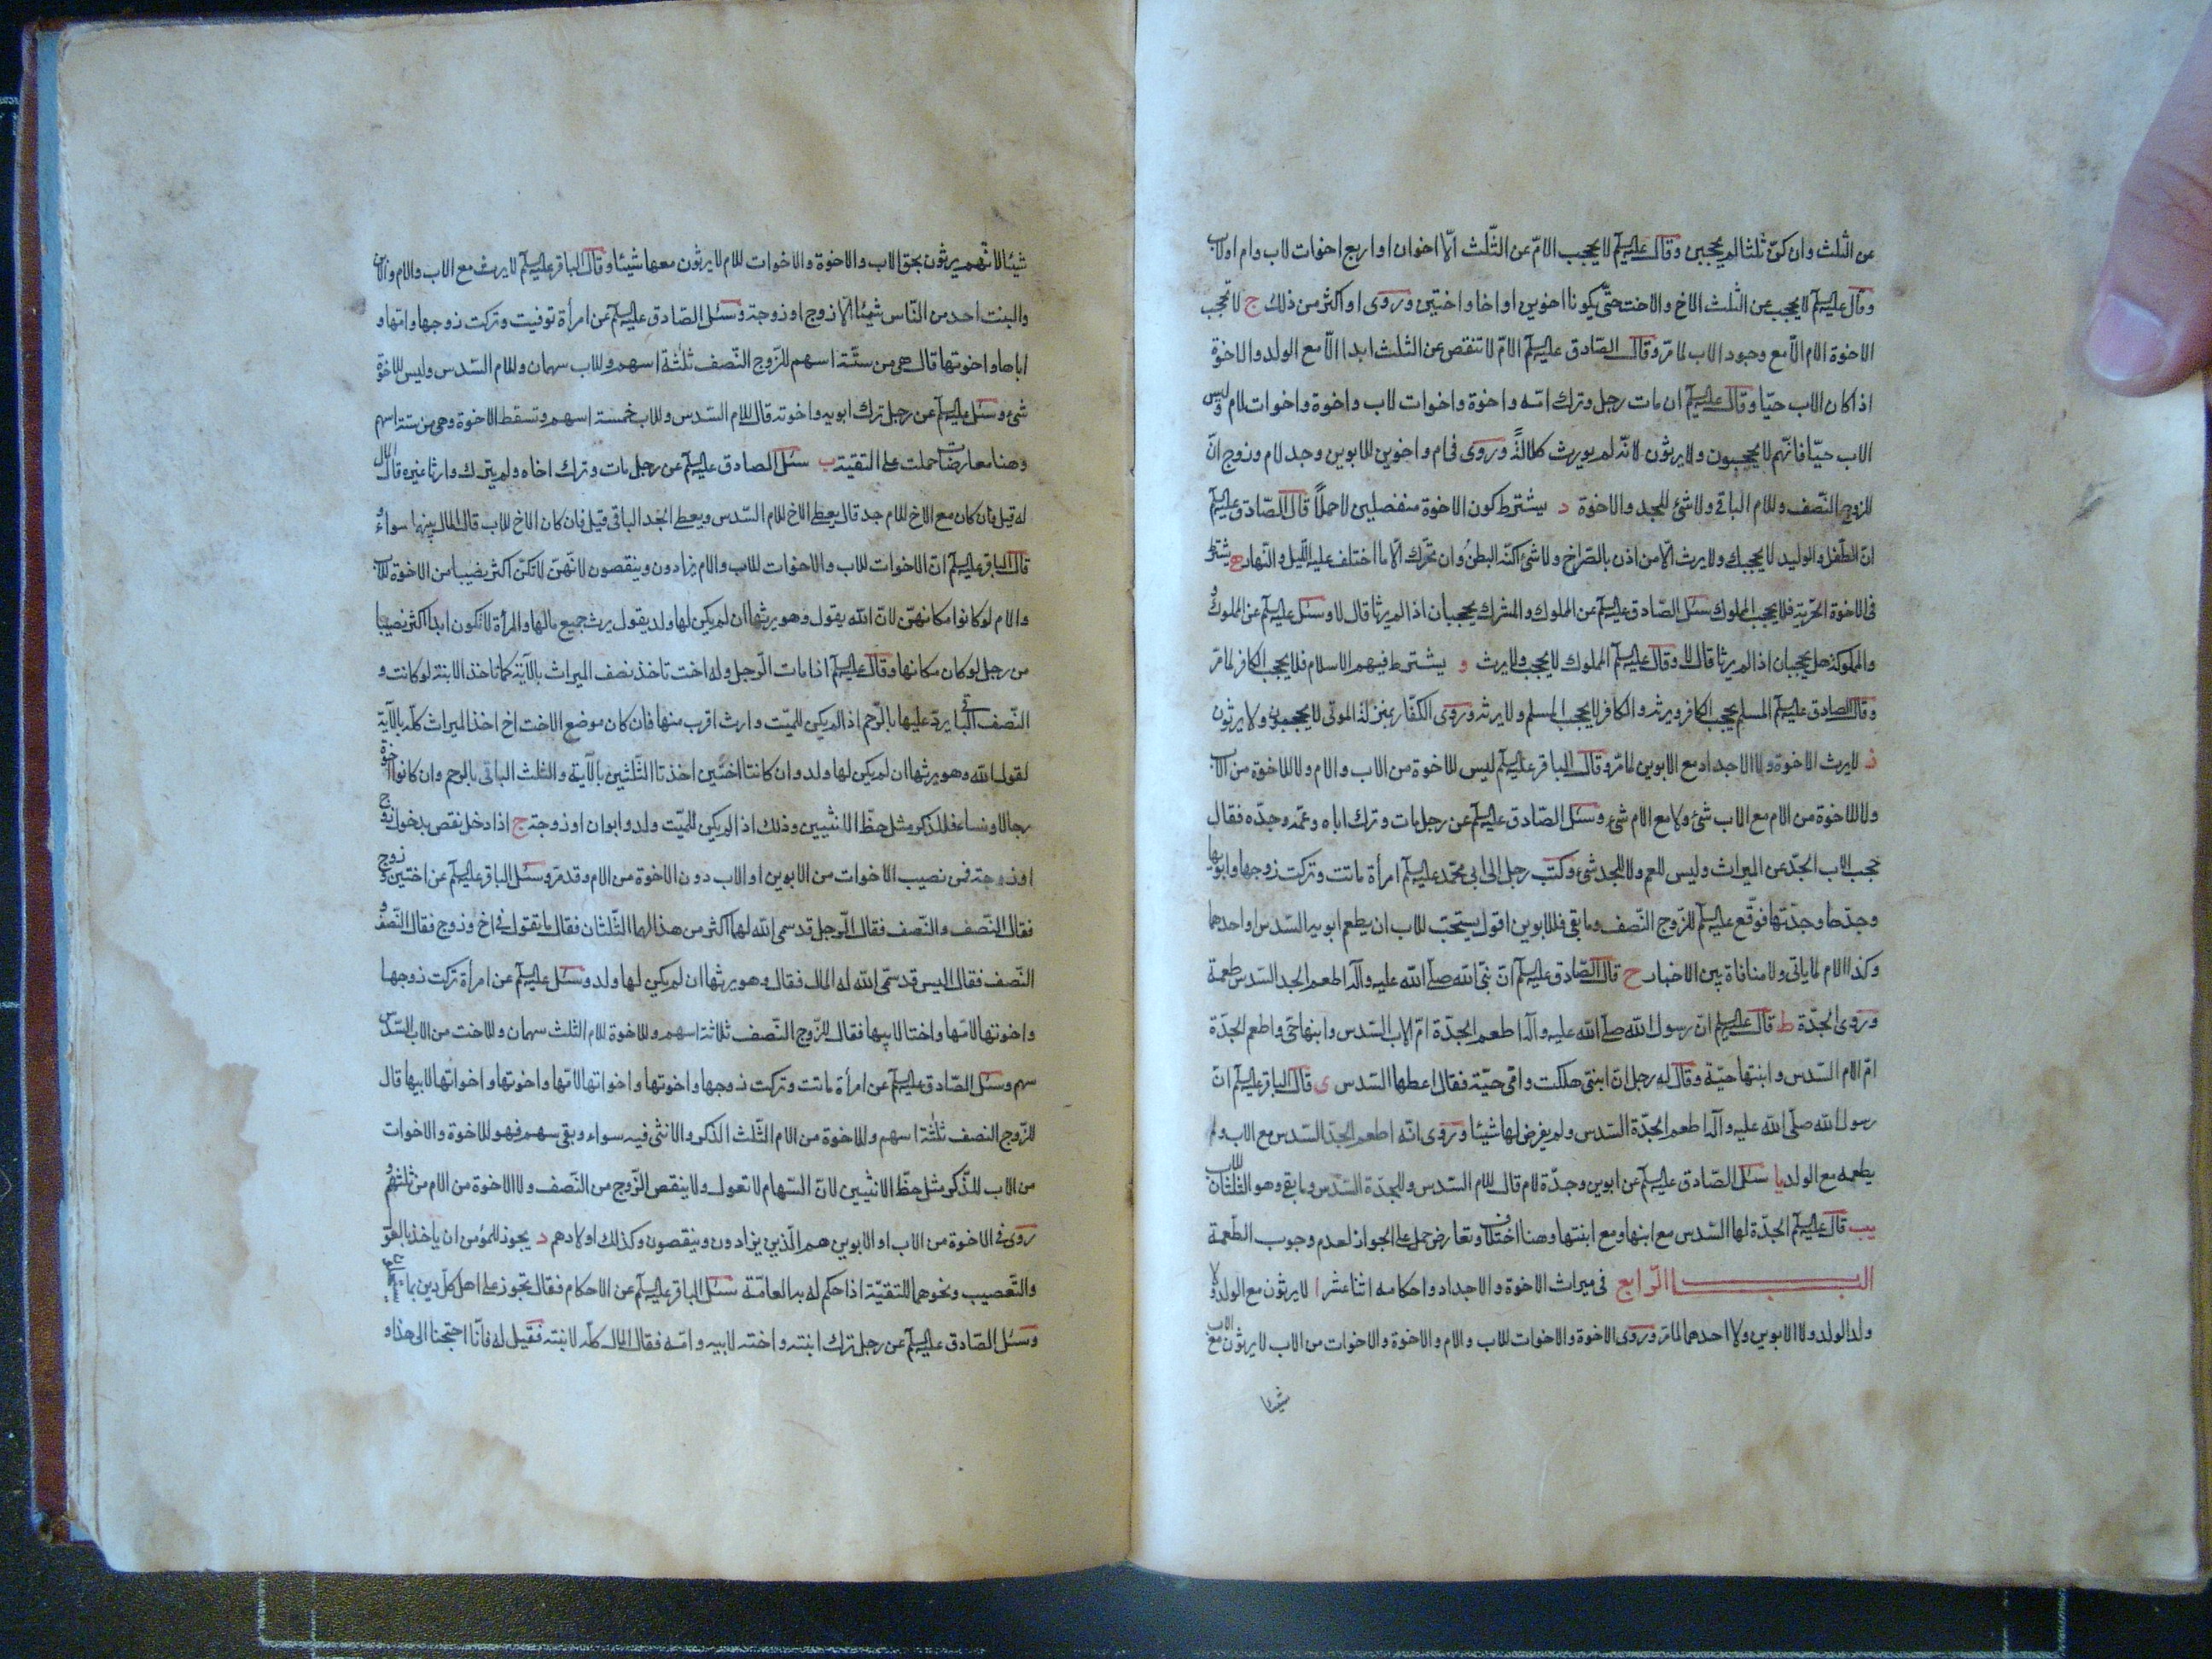 عن الثلث وان كنّ ثلثا لم يحجبن وقال عليه السلم لا يحجب الامّ عن الثّلث الّا اخوان او اربع اخوات لاب وام او لاب
وقال عليه السلم لا يحجب عن الثلث الاخ والاخت حتّى يكونا اخوين او اخا واختين وروى او اكثر من ذلك ج لا تحجب
الاخوة الام الّا مع وجود الاب لما مرّ وقال الصّادق عليه السلم الامّ لا تنقص عن الثلث ابدا الّا مع الولد والاخوة
اذا كان الاب حيّا وقال عليه السلم ان مات رجل وترك امّه واخوة واخوات لاب واخوة واخوات لام وليس
الاب حيّا فانّهم لا يحجبون ولا يرثون لانّه لم يورث كلالة وروى فى ام واخوين للابوين وجد لام وزوج انّ
للزوج النّصف وللام الباقى ولا شئ للجد والاخوة د يشترط كون الاخوة منفصلين لا حملاً قال الصّادق عليه السلم
انّ الطّفل والوليد لا يحجبك ولا يرث الّا من اذن بالصّراخ ولا شئ اكنّه البطن وان تحرّك الّا ما اختلف عليه اللّيل والنّهار ه يشترط
فى الاخوة الحرّية فلا يحجب المملوك سئل الصّادق عليه السلم عن المملوك والمشرك يحجبان اذا لم يرثا قال لا وسئل عليه السلم عن المملوك
والمملوكة هل يحجبان اذا لم يرثا قال لا وقال عليه السلم المملوك لا يحجب ولا يرث و يشترط فيهم الاسلام فلا يحجب الكافر لما مرّ
وقال الصادق عليه السلم المسلم يحجب الكافر ويرثه والكافر لا يحجب المسلم ولا يرثه وروى الكفّار بمنزلة الموتى لا يحجبون ولا يرثون
ز لا يرث الاخوة ولا الاجداد مع الابوين لما مرّ وقال الباقر عليه السلم ليس للاخوة من الاب والام ولا للاخوة من الاب
ولا للاخوة من الام مع الاب شئ ولا مع الام شئ وسئل الصّادق عليه السلم عن رجل مات وترك اباه وعمّه وجدّه فقال
حجب الاب الجدّ عن الميراث وليس للعم ولا للجد شئ وكتب رجل الى ابى محمّد عليه السلم امرأة ماتت وتركت زوجها وابويها
وجدّها وجدّتها فوقّع عليه السلم للزّوج النّصف وما بقى فللابوين اقول يستحبّ للاب ان يطعم ابويه السّدس او احدهما
وكذا الام لما ياتى ولا منافاة بين الاخبار ح قال الصّادق عليه السلم انّ نبىّ الله صلّى الله عليه وآله اطعم الجد السّدس طعمة
وروى الجدّة ط قال عليه السلم انّ رسول الله صلّى الله عليه وآله اطعم الجدّة امّ الاب السّدس وابنها حىّ واطعم الجدّة
امّ الام السّدس وابنتها حيّة وقال له رجل انّ ابنتى هلكت وامّى حيّة فقال اعطها السّدس ى قال الباقر عليه السلم انّ
رسول الله صلّى الله عليه وآله اطعم الجدّة السّدس ولم يفرض لها شيئا وروى انّه اطعم الجدّ السّدس مع الاب ولم
يطعمه مع الولد يا سئل الصّادق عليه السلم عن ابوين وجدّة لام قال للام السّدس وللجدّة السّدس وما بقى وهو الثّلثان للاب
يب قال عليه السلم الجدّة لها السّدس مع ابنها ومع ابنتها وهنا اختلاف وتعارض حمل على الجواز لعدم وجوب الطّعمة
البــــاب الرّابع فى ميراث الاخوة والاجداد واحكامه اثنا عشر ا لا يرثون مع الولد ولا
ولد الولد ولا الابوين ولا احدهما لما مرّ وروى الاخوة والاخوات للاب والام والاخوة والاخوات من الاب لا يرثون مع الاب
شيئا
شيئا لانّهم يرثون بحق الاب والاخوة والاخوات للام لا يرثون معها شيئا وقال الباقر عليه السلم لا يرث مع الاب والام والابن
والبنت احد من النّاس شيئا الّا زوج او زوجة وسئل الصّادق عليه السلم عن امرأة توفيت وتركت زوجها وامّها و
اباها واخوتها قال هى من ستّة اسهم للزّوج النّصف ثلثة اسهم وللاب سهمان وللام السّدس وليس للاخوة
شئ وسئل عليه السلم عن رجل ترك ابويه واخوته قال للام السّدس وللاب خمسة اسهم وتسقط الاخوة وهى من ستة اسهم
وهنا معارضات حملت على التقيّة ب سئل الصادق عليه السلم عن رجل مات وترك اخاه ولم يترك وارثا غيره قال المال
له قيل فان كان مع الاخ للام جد قال يعطى الاخ للام السّدس ويعطى الجد الباقى قيل فان كان الاخ للاب قال المال بينهما سواء و
قال الباقر عليه السلم انّ الاخوات للاب والاخوات للاب والام يزادون وينقصون لانّهنّ لا تكنّ اكثر نصيبا من الاخوة للاب
والام لو كانوا مكانهنّ لانّ الله يقول وهو يرثها ان لم يكن لها ولد يقول يرث جميع مالها والمرأة لا تكون ابدا اكثر نصيبا
من رجل لو كان مكانها وقال عليه السلم اذا مات الرّجل وله اخت تاخذ نصف الميراث بالآية كما تاخذ الابنة لو كانت و
النّصف الباقى يردّ عليها بالرّحم اذا لم يكن للميّت وارث اقرب منها فان كان موضع الاخت اخ اخذ الميراث كلّه بالآية
لقول الله وهو يرثها ان لم يكن لها ولد وان كانتا اختين اخذتا الثّلثين بالآية والثلث الباقى بالرحم وان كانوا اخوة
رجالا ونساء فللذكر مثل حظّ الانثيين وذلك اذا لم يكن للميّت ولد وابوان او زوجة ج اذا دخل نقص بدخول زوج
او زوجة فمن نصيب الاخوات من الابوين او الاب دون الاخوة من الام وقد مرّ وسئل الباقر عليه السلم عن اختين وزوج
فقال النّصف والنّصف فقال الرّجل قد سمى الله لهما اكثر من هذا لهما الثّلثان فقال ما تقول فى اخ وزوج فقال النّصف و
النّصف فقال اليس قد سمّى الله له المال فقال وهو يرثها ان لم يكن لها ولد وسئل عليه السلم عن امرأة تركت زوجها
واخوتها لامّها واختا لابيها فقال للزّوج النّصف ثلاثة اسهم وللاخوة للام الثلث سهمان وللاخت من الاب السّدس
سهم وسئل الصّادق عليه السلم عن امرأة ماتت وتركت زوجها واخوتها واخواتها لامّها واخوتها واخواتها لابيها قال
للزّوج النصف ثلثة اسهم وللاخوة من الام الثّلث الذكر والانثى فيه سواء وبقى سهم فهو للاخوة والاخوات
من الاب للذّكر مثل حظّ الانثيين لانّ السّهام لا تعول ولا ينقص الزّوج من النّصف ولا الاخوة من الام من ثلثهم و
روى فى الاخوة من الاب او الابوين هم الّذين يزادون وينقصون وكذلك اولادهم د يجوز للمؤمن ان ياخذ بالعول
والتّعصيب ونحوهما للتقيّة اذا حكم له به العامّة سئل الباقر عليه السلم عن الاحكام فقال تجوز على اهل كلّ دين بما يستحلّون
وسئل الصّادق عليه السلم عن رجل ترك ابنته واخته لابيه وامّه فقال المال كلّه لابنته فقيل له فانّا احتجنا الى هذا و